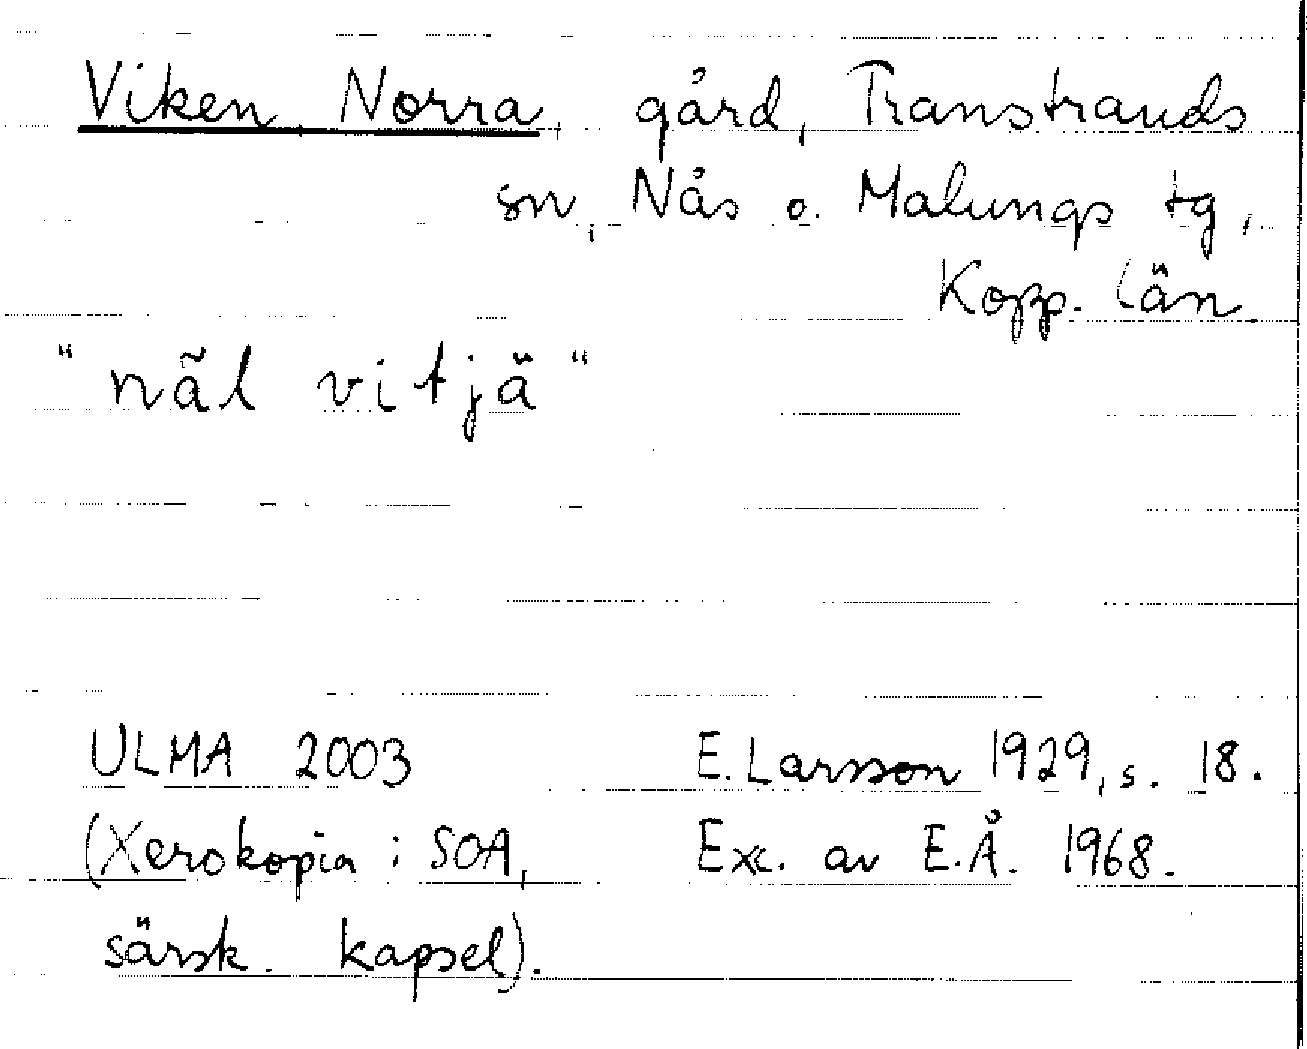 Viken, Norra, gård, Transtrands
sn, Nås o. Malungs tg,
Kopp. län
"nãl vitjä"
ULMA 2003 E. Larsson 1929, s. 18.
(Xerokopia i SOA, Exc. av E.Å. 1968.
särsk. kapsel).